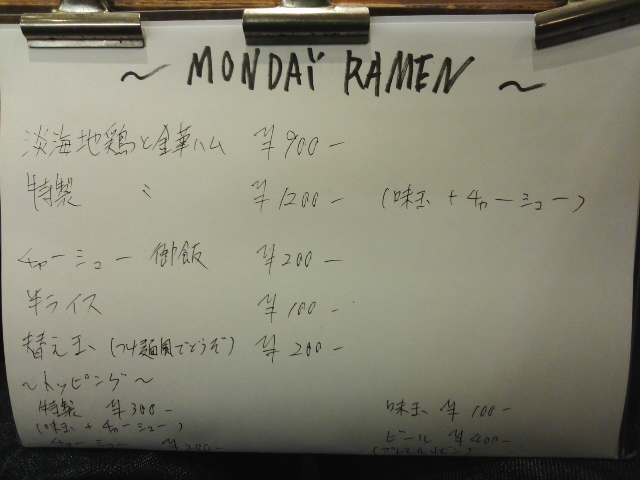 ~ MONDAÏ RAMEN ~
淡海地鶏と金華ハム ¥900-
特製 〃 ¥1200- (味玉 + チャーシュー)
チャーシュー御飯 ¥200-
半ライス ¥100-
替え玉 (つけ麺風でどうぞ) ¥200-
~トッピング~
特製 ¥300- 味玉 ¥100-
(味玉 + チャーシュー) ビール ¥400-
チャーシュー ¥200-